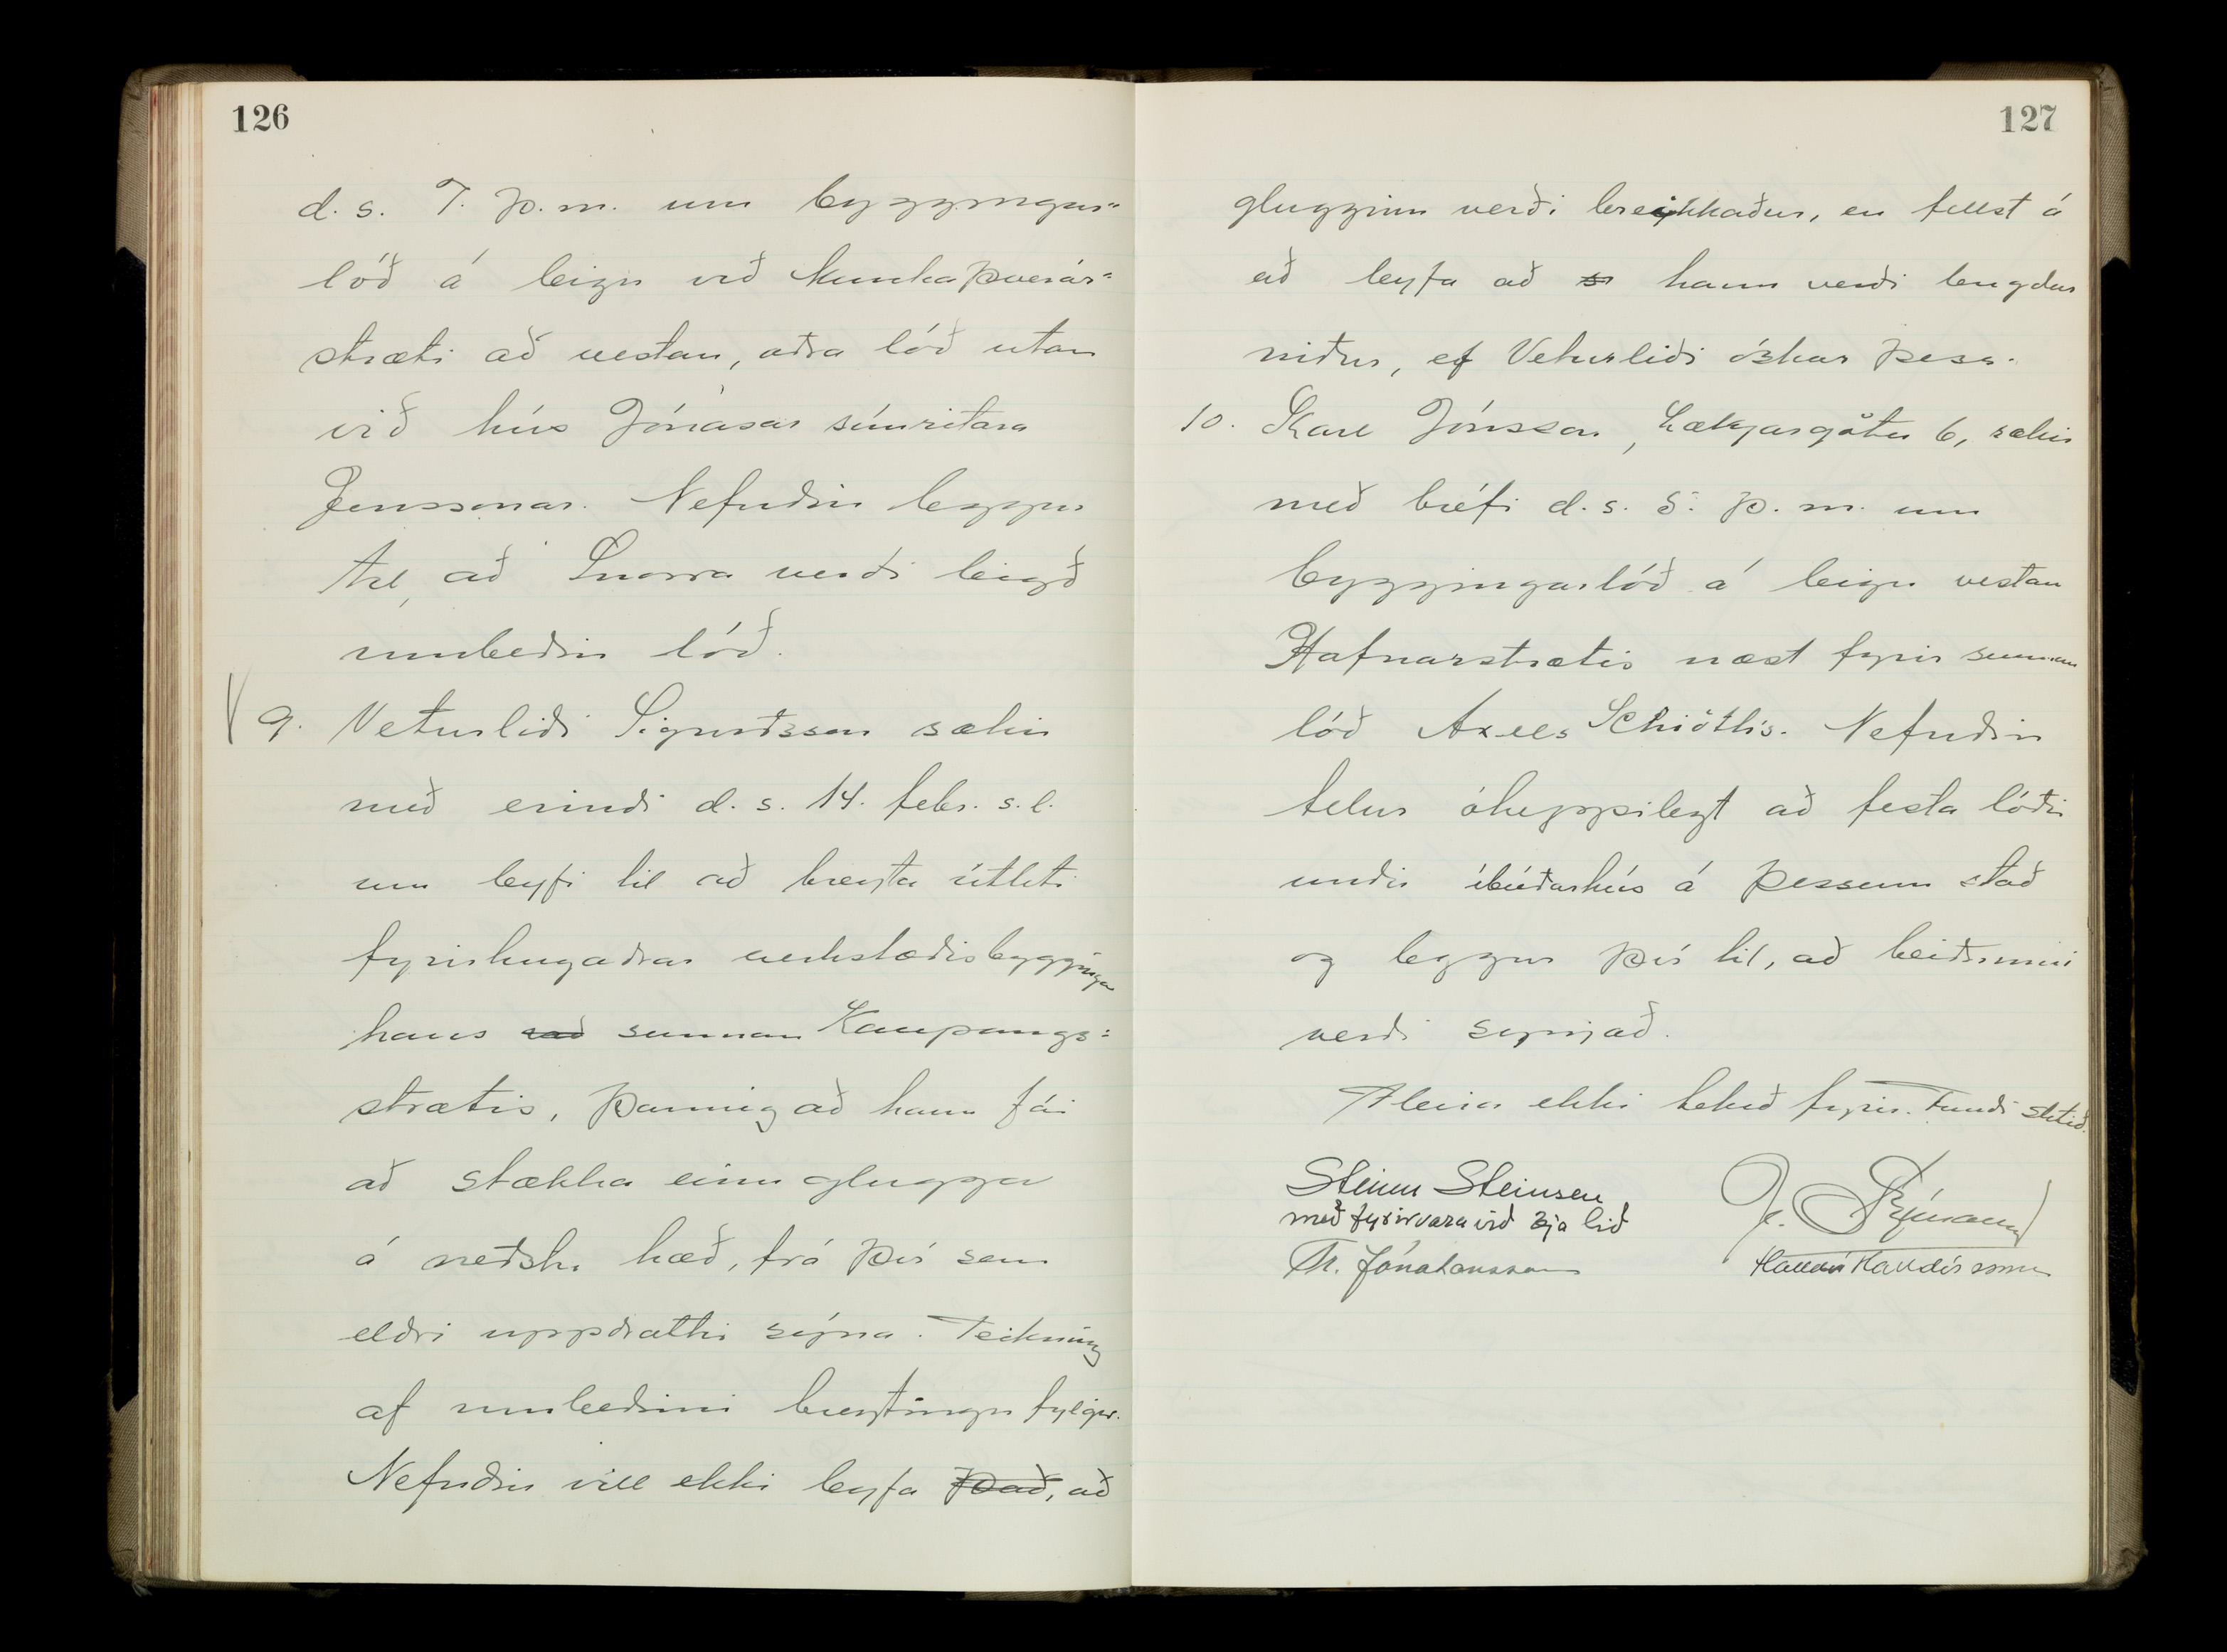 126
d. s. 7. þ. m. um byggingar=
lóð á leigu við Munkaþverár=
stræti að vestan, aðra lóð utan
við hús Jónasar símritara
Jenssonar. Nefndin leggur
til, að Snorra verði leigð
umbeðin lóð.
9. Veturliði Sigurðsson sækir
með erindi d. s. 14. febr. s. l.
um leyfi til að breyta útliti
fyrirhugaðrar verkstæðisbyggingar
hans sunnan Kaupangs=
strætis, þannig að hann fái
að stækka einn glugga
á neðstu hæð, frá því sem
eldri uppdrættir sýna. Teikning
af umbeðinni breytingu fylgir.
Nefndin vill ekki leyfa það, að
127
glugginn verði breikkaður, en fellst á
að leyfa að hann verði lengdur
niður, ef Veturliði óskar þess.
10. Karl Jónsson, Lækjargötu 6, sækir
með bréfi d. s. 5. þ. m. um
byggingarlóð á leigu vestan
Hafnarstrætis næst fyrir sunnan
lóð Axels Schiöth's. Nefndin
telur óheppilegt að festa lóðir
undir íbúðarhús á þessum stað
og leggur því til, að beiðninni
verði synjað.
Fleira ekki tekið fyrir. Fundi slitið.
Steinn Steinsen
með fyrirvara við 3ja lið
Tr. Jónatansson
Halldór Halldórsson